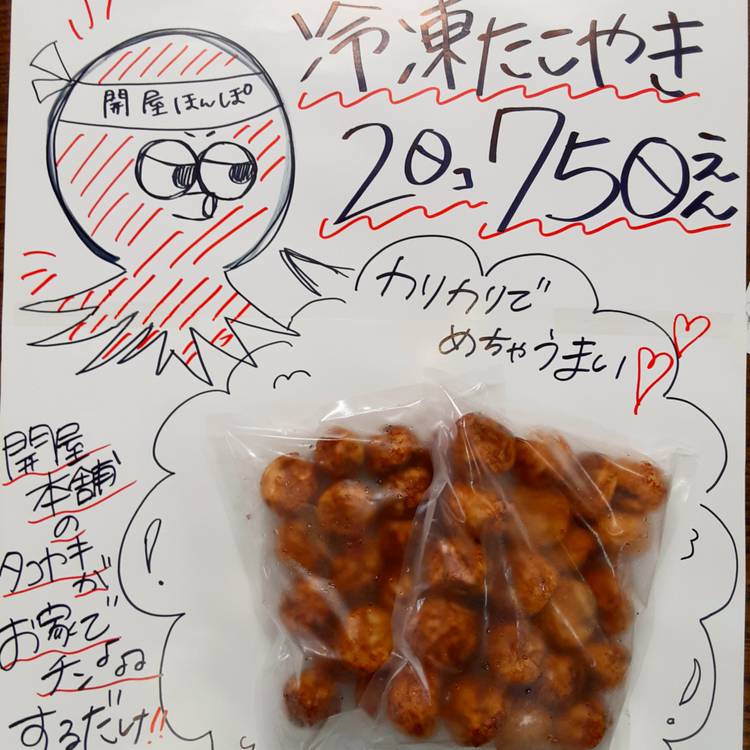 冷凍たこやき
20コ750えん
開屋ほんぽ
カリカリで
めちゃうまい
開屋
本舗
の
タコヤキが
お家で
チン
するだけ!!